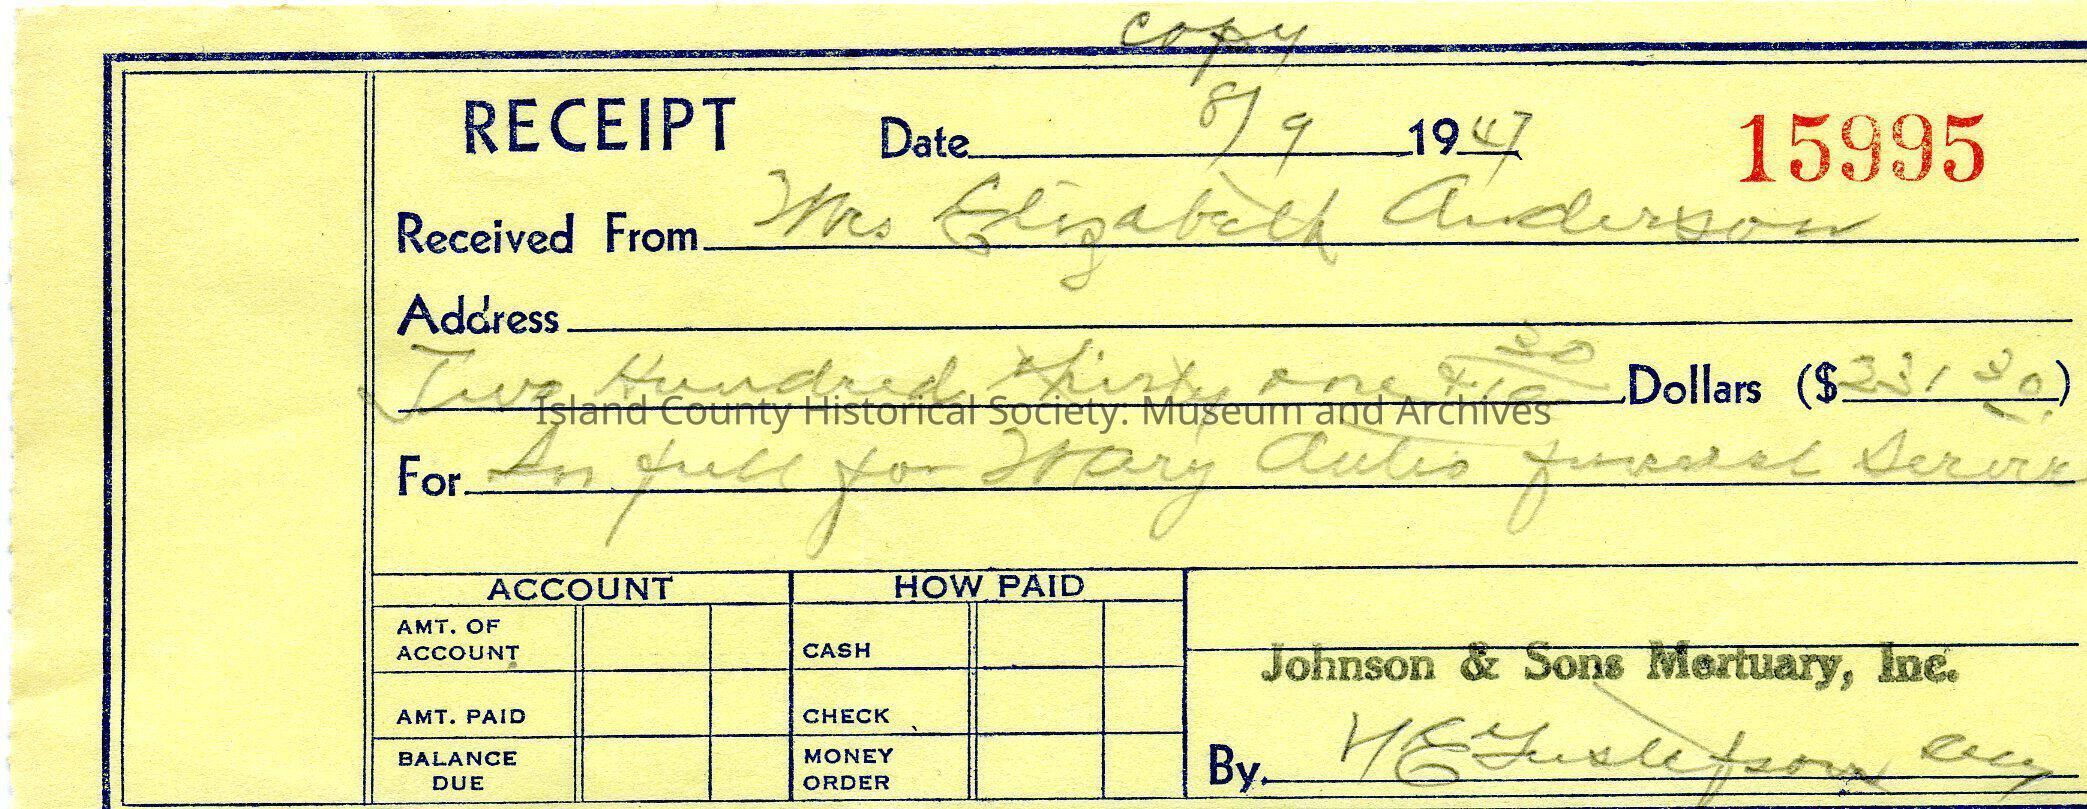 copy
RECEIPT Date 8/9 1947 15995
Received From Mrs Elizabeth Anderson
Address
Two Hundred thirty one & 30/10 Dollars ($231 30)
Island County Historical Society: Museum and Archives
For In full for Mary Autio funeral Service
ACCOUNT HOW PAID
AMT. OF ACCOUNT CASH
Johnson & Sons Mortuary, Inc.
AMT. PAID CHECK
BALANCE DUE MONEY ORDER
By. H E Gustafson